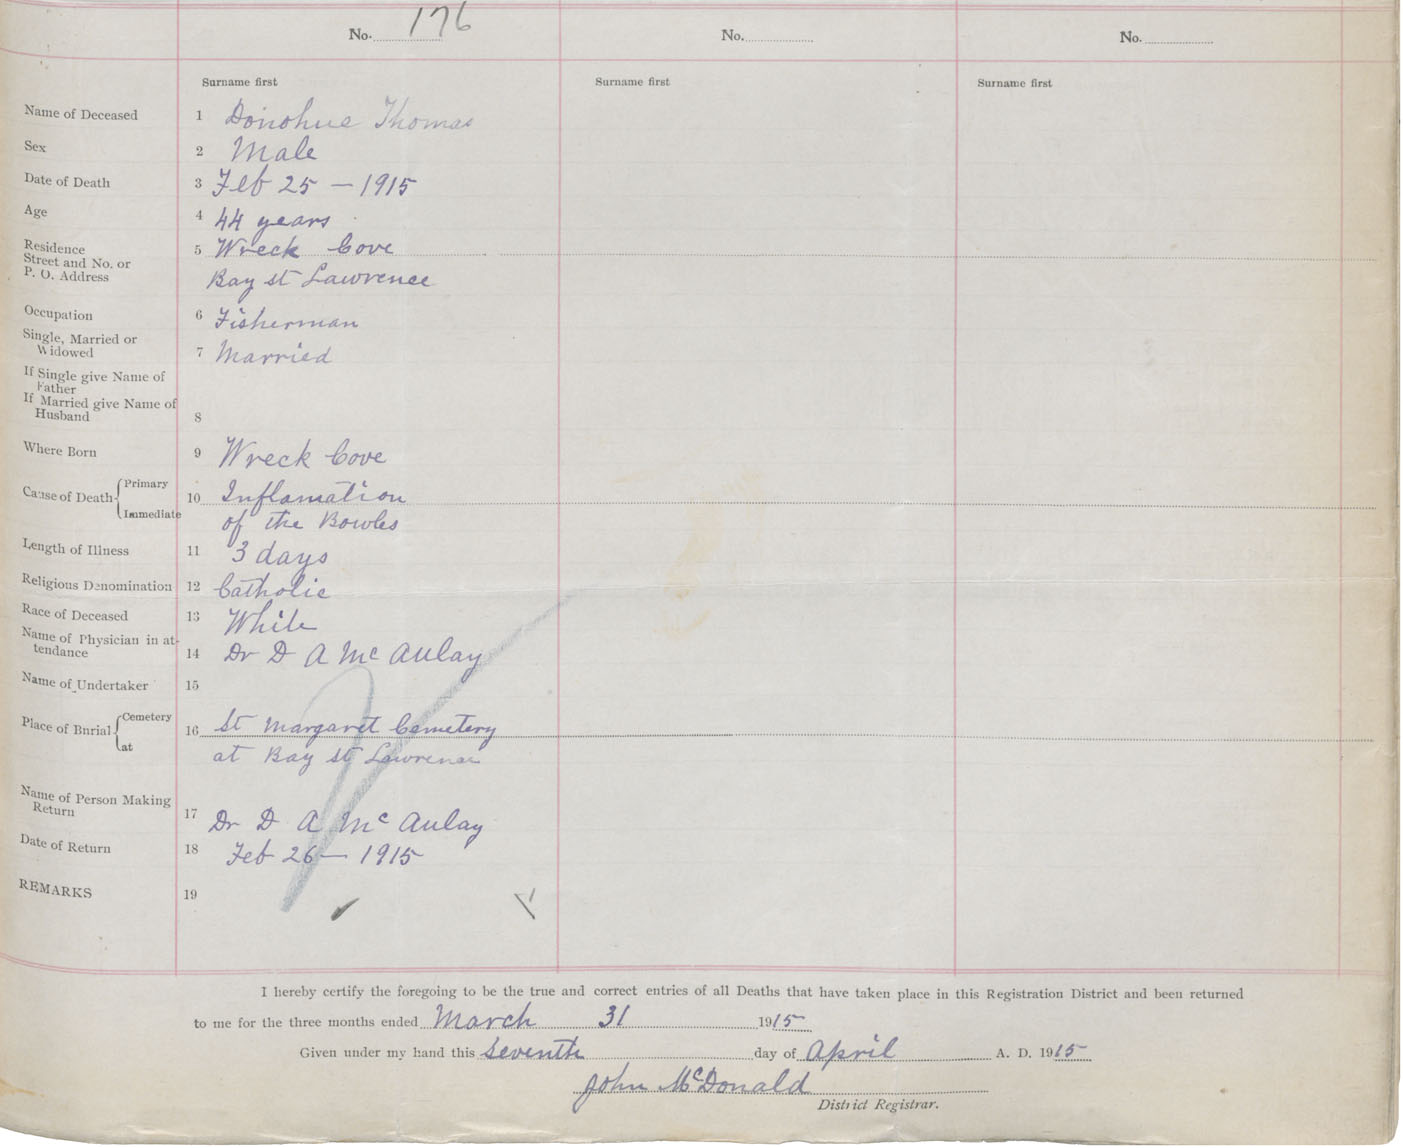 No. 176 No. No.
Surname first Surname first Surname first
Name of Deceased 1 Donohue Thomas
Sex 2 Male
Date of Death 3 Feb 25 - 1915
Age 4 44 years
Residence
Street and No. or 5 Wreck Cove
P. O. Address Bay st Lawrence
Occupation 6 Fisherman
Single, Married or
Widowed 7 Married
If Single give Name of
Father
If Married give Name of
Husband 8
Where Born 9 Wreck Cove
Cause of Death { Primary 10 Inflamation
Immediate of the Bowles
Length of Illness 11 3 days
Religious Denomination 12 Catholic
Race of Deceased 13 White
Name of Physician in at-
tendance 14 Dr D A Mc Aulay
Name of Undertaker 15
Place of Burial { Cemetery 16 St Margaret Cemetery
at at Bay st Lawrence
Name of Person Making
Return 17 Dr D A Mc Aulay
Date of Return 18 Feb 26 - 1915
REMARKS 19
I hereby certify the foregoing to be the true and correct entries of all Deaths that have taken place in this Registration District and been returned
to me for the three months ended March 31 1915
Given under my hand this Seventh day of April A. D. 1915
John McDonald
District Registrar.